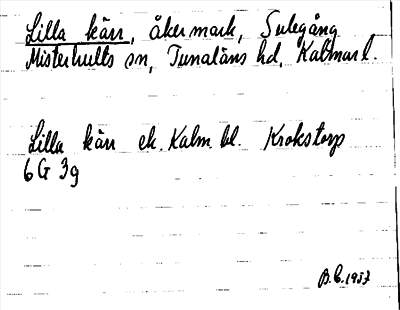 Lilla kärr, åkermark, Sulegång
Misterhults sn, Tunaläns hd, Kalmar l.
Lilla kärr ek. Kalm bl. Krokstorp
6 G 3g
B.C. 1957